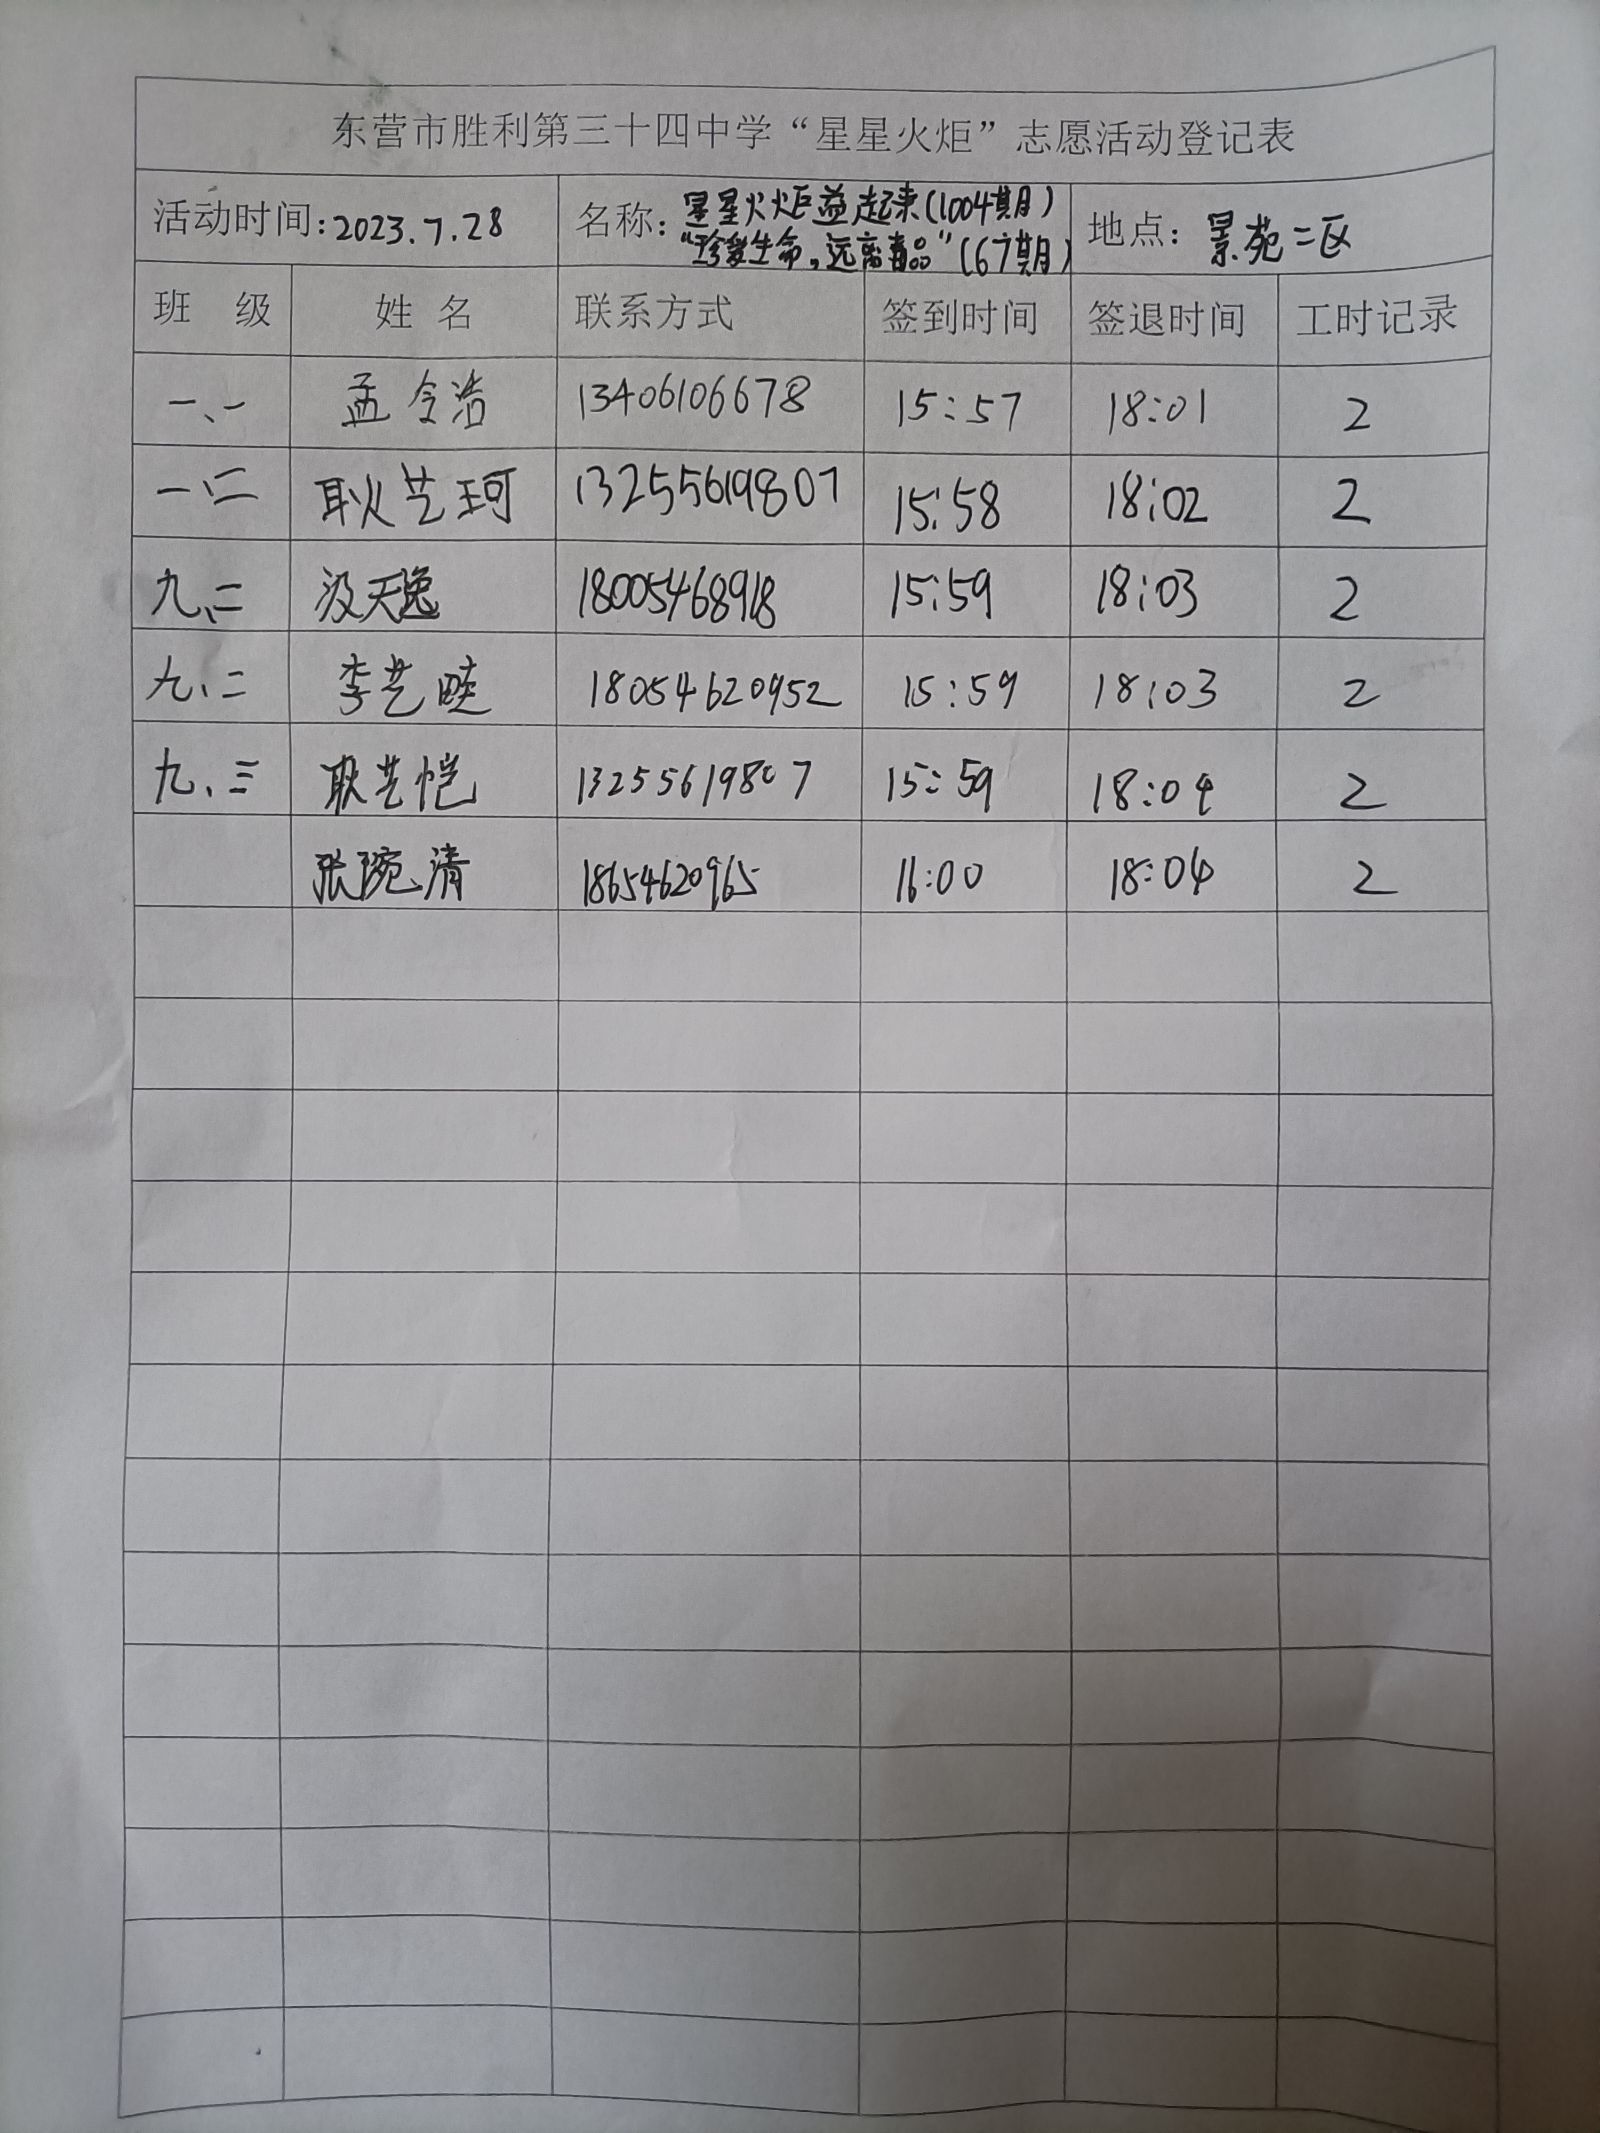 东营市胜利第三十四中学“星星火炬”志愿活动登记表
活动时间:2023.7.28 名称:星星火火炬益起来(1004期) 地点:景苑二区
“珍爱生命,远离毒品”(67期)
班 级 姓 名 联系方式 签到时间 签退时间 工时记录
一、一 孟令浩 13406106678 15:57 18:01 2
一、二 耿艺珂 13255619807 15:58 18:02 2
九、二 汲天逸 18005468918 15:59 18:03 2
九、二 李艺畦 18054620952 15:59 18:03 2
九、三 耿艺恺 13255619807 15:59 18:04 2
张琬清 18654620965 16:00 18:04 2